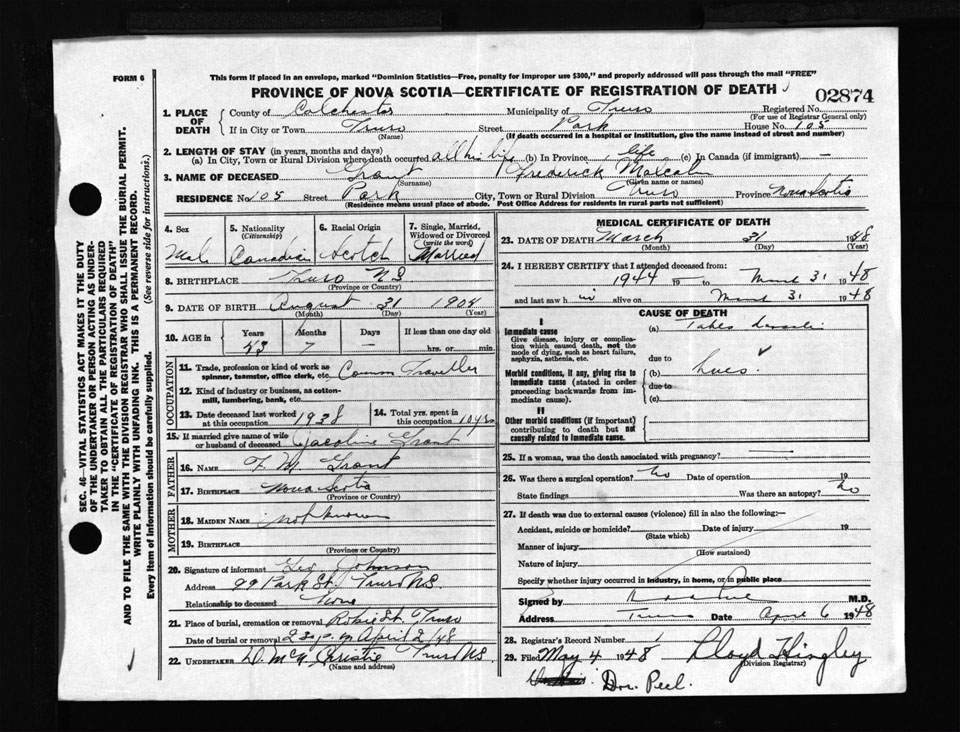 FORM 6
This form if placed in an envelope, marked "Dominion Statistics—Free, penalty for improper use $300," and properly addressed will pass through the mail "FREE"
PROVINCE OF NOVA SCOTIA—CERTIFICATE OF REGISTRATION OF DEATH
02874
1. PLACE OF DEATH
County of Colchester Municipality of Truro Registered No.
(For use of Registrar General only)
If in City or Town Truro Street Park House No. 105
(Name) (If death occurred in a hospital or institution, give the name instead of street and number)
2. LENGTH OF STAY (in years, months and days)
(a) In City, Town or Rural Division where death occurred all his life (b) In Province life (c) In Canada (if immigrant) —
3. NAME OF DECEASED Grant Frederick Malcolm
(Surname) (Given name or names)
RESIDENCE No. 105 Street Park City, Town or Rural Division Truro Province Nova Scotia
(Residence means usual place of abode. Post Office Address for residents in rural parts not sufficient)
4. Sex 5. Nationality (Citizenship) 6. Racial Origin 7. Single, Married, Widowed or Divorced (write the word)
Male Canadian Scotch Married
8. BIRTHPLACE Truro N S
(Province or Country)
9. DATE OF BIRTH August 31 1904
(Month) (Day) (Year)
10. AGE in Years Months Days If less than one day old
43 7 — hrs. or min.
OCCUPATION
11. Trade, profession or kind of work as spinner, teamster, office clerk, etc. Common Traveller
12. Kind of industry or business, as cotton-mill, lumbering, bank, etc.
13. Date deceased last worked at this occupation 1938
14. Total yrs. spent in this occupation 10 yrs
15. If married give name of wife or husband of deceased Grant
FATHER
16. NAME F. M. Grant
17. BIRTHPLACE Nova Scotia
(Province or Country)
MOTHER
18. MAIDEN NAME not known
19. BIRTHPLACE
(Province or Country)
20. Signature of informant Geo Johnson
Address 99 Park St. Truro N S
Relationship to deceased None
21. Place of burial, cremation or removal Robie St. Truro
Date of burial or removal 2 30 p. m April 2/48
22. UNDERTAKER Christie Truro N S
(Name and address)
MEDICAL CERTIFICATE OF DEATH
23. DATE OF DEATH March 31 1948
(Month) (Day) (Year)
24. I HEREBY CERTIFY that I attended deceased from:
1944 19 to March 31 1948
and last saw h im alive on March 31 1948
CAUSE OF DEATH
I
Immediate cause
Give disease, injury or complication which caused death, not the mode of dying, such as heart failure, asphyxia, asthenia, etc.
(a) Tabes dorsalis
due to
Morbid conditions, if any, giving rise to immediate cause (stated in order proceeding backwards from immediate cause).
(b) Lues
due to
(c)
II
Other morbid conditions (if important) contributing to death but not causally related to immediate cause.
25. If a woman, was the death associated with pregnancy?
26. Was there a surgical operation? no Date of operation 19
State findings Was there an autopsy? no
27. If death was due to external causes (violence) fill in also the following:—
Accident, suicide or homicide? Date of injury 19
(State which)
Manner of injury
(How sustained)
Nature of injury
Specify whether injury occurred in industry, in home, or in public place
Signed by M.D.
Address Truro Date April 6 1948
28. Registrar's Record Number 1
29. Filed May 4 1948 Lloyd Hingley
(Division Registrar)
SEC. 46—VITAL STATISTICS ACT MAKES IT THE DUTY
OF THE UNDERTAKER OR PERSON ACTING AS UNDER-
TAKER TO OBTAIN ALL THE PARTICULARS REQUIRED
IN THE "CERTIFICATE OF REGISTRATION OF DEATH"
AND TO FILE THE SAME WITH THE DIVISION REGISTRAR WHO SHALL ISSUE THE BURIAL PERMIT.
WRITE PLAINLY WITH UNFADING INK. THIS IS A PERMANENT RECORD.
Every item of information should be carefully supplied. (See reverse side for instructions.)